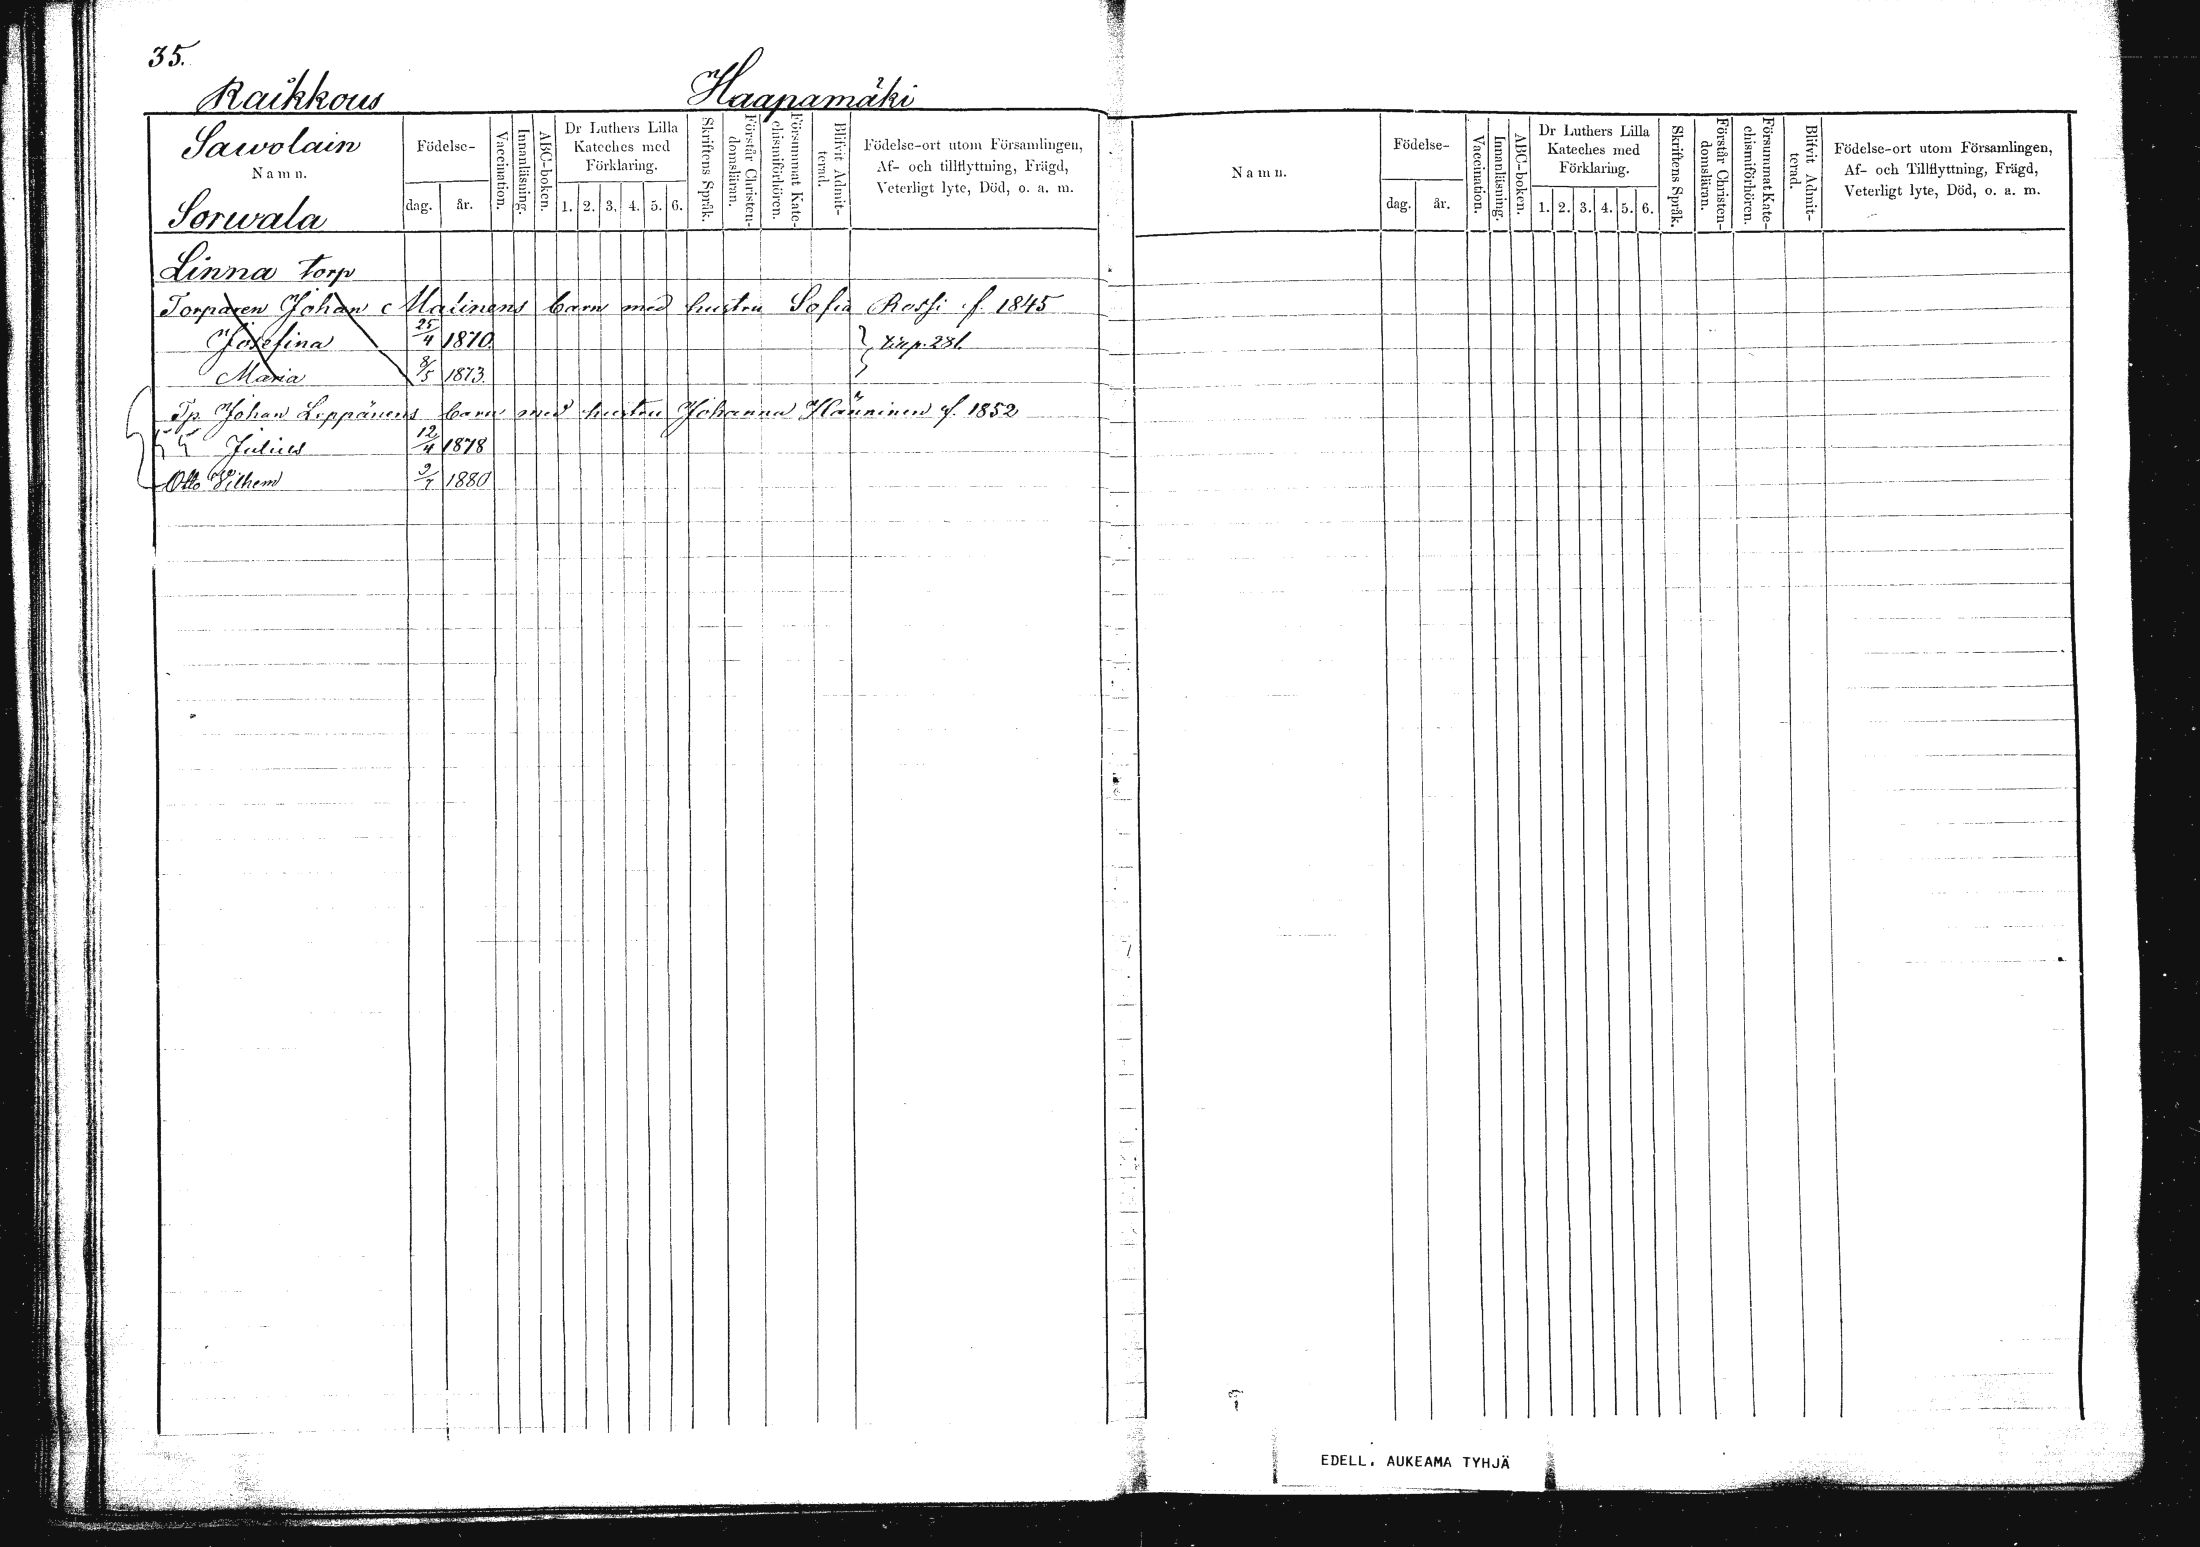 35.
Raikkous Haapamäki
Sawolain
Namn.
Sorwala
Födelse-
dag. år.
Vaccination.
Innanläsning.
ABC-boken.
Dr Luthers Lilla
Kateches med
Förklaring.
1. 2. 3. 4. 5. 6.
Skriftens Språk.
Förstår Christen-
domsläran.
Försummat Kate-
chismiförhören.
Blifvit Admit-
terad.
Födelse-ort utom Församlingen,
Af- och tillflyttning, Frägd,
Veterligt lyte, Död, o. a. m.
Linna torp
Torparen Johan Malinens barn med hustru Sofia Rossi f. 1845
Josefina 25/4 1870
Maria 8/5 1873.
p. 281.
Tp. Johan Leppänens barn med hustru Johanna Hänninen f. 1852
Julius 12/4 1878
Otto Vilhem 9/7 1880
Namn.
Födelse-
dag. år.
Vaccination.
Innanläsning.
ABC-boken.
Dr Luthers Lilla
Kateches med
Förklaring.
1. 2. 3. 4. 5. 6.
Skriftens Språk.
Förstår Christen-
domsläran.
Försummat Kate-
chismiförhören.
Blifvit Admit-
terad.
Födelse-ort utom Församlingen,
Af- och Tillflyttning, Frägd,
Veterligt lyte, Död, o. a. m.
EDELL. AUKEAMA TYHJÄ